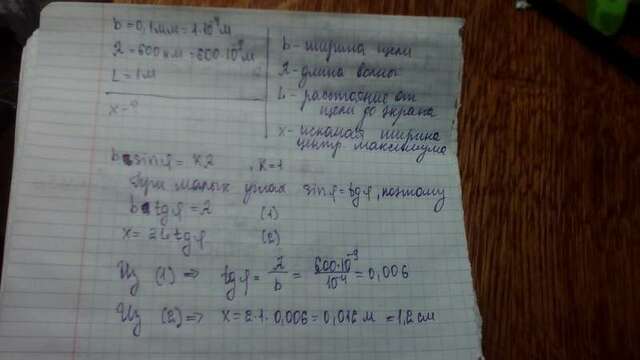 b = 0,1мм = 1·10⁻⁴м
λ = 600нм = 600·10⁻⁹м
L = 1м
x - ?
b - ширина щели
λ - длина волны
L - расстояние от
щели до экрана
x - искомая ширина
центр. максимума
b sinφ = kλ , k=1
При малых углах sinφ = tgφ, поэтому
b tgφ = λ (1)
x = 2Ltgφ (2)
Из (1) ⇒ tgφ = λ/b = 600·10⁻⁹/10⁻⁴ = 0,006
Из (2) ⇒ x = 2·1·0,006 = 0,012м = 1,2см